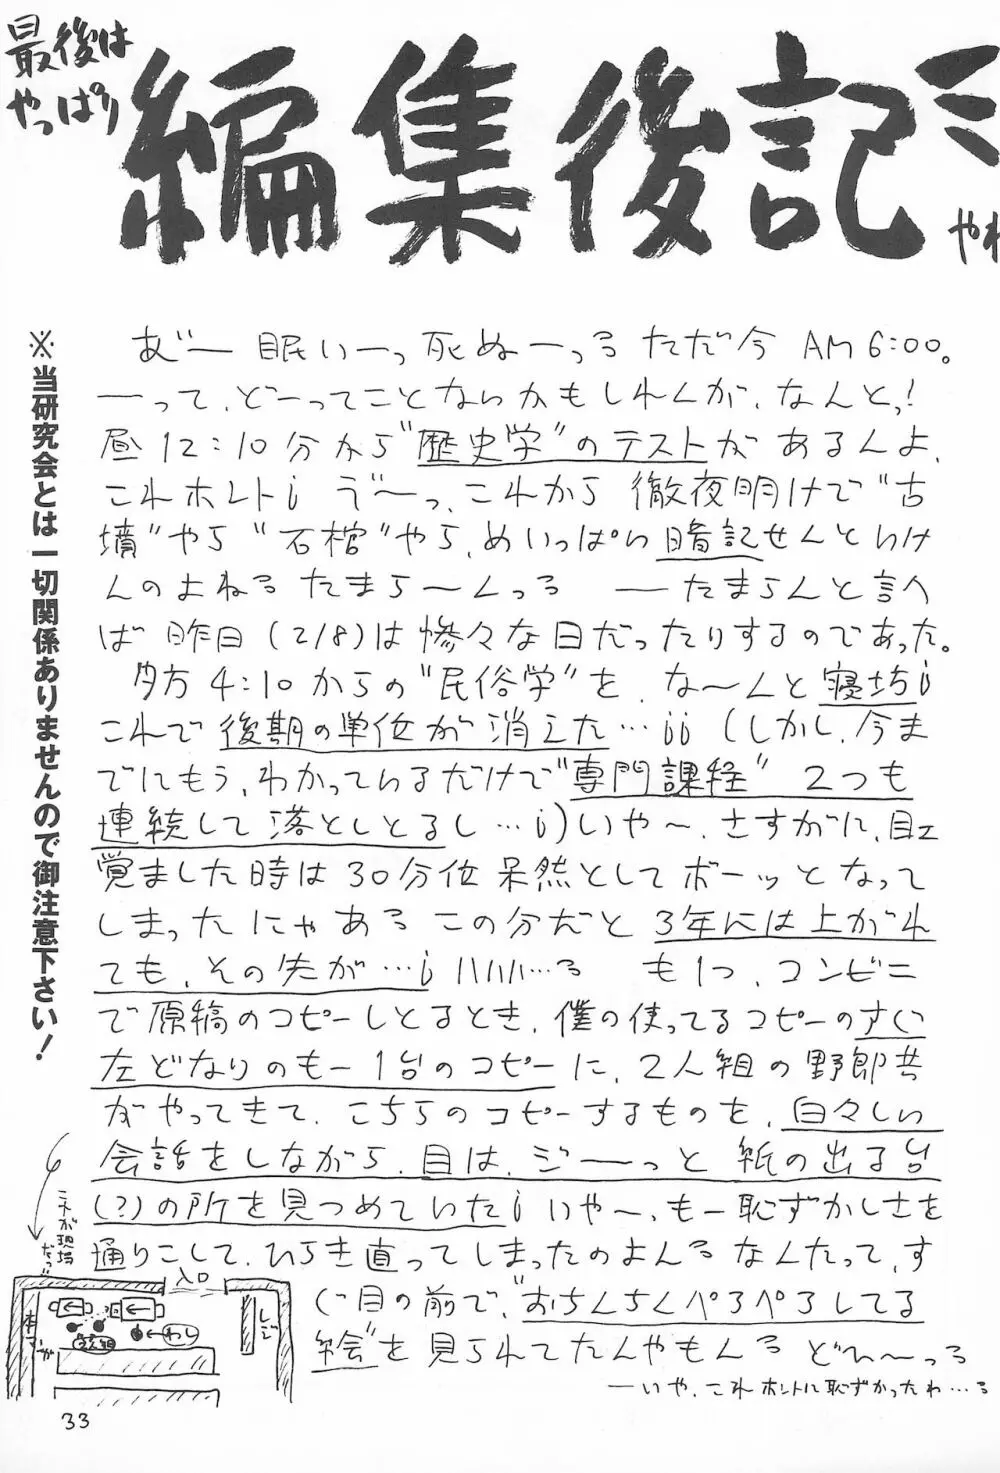 最後は
やっぱり
編集後記ミ
やわ
※当研究会とは一切関係ありませんので御注意下さい!
あ゛～ 眠いーっ死ぬーっる ただ今 AM6:00。
―って、どーってことないかもしれんが、なんとっ!
昼12:10分から“歴史学”のテストがあるんよ、
これホントi う゛～っ、これから 徹夜明けで“古
墳”やら“石棺”やら、めいっぱい暗記せんといけ
んのよねる たまら～んっる ―たまらんと言へ
ば 昨日(2/8)は惨々な日だったりするのであった。
夕方4:10からの“民俗学”を、な～んと寝坊i
これで後期の単位が消えた…ii (しかし、今ま
でにもう、わかっているだけで“専門課程” 2つも
連続して落としとるし…i)いや～、さすがに、目エ
覚ました時は30分位呆然としてボーッとなって
しまったにゃある この分だと3年には上がれ
ても、その先が…i
も1つ、コンビニ
で原稿のコピーしとるとき、僕の使ってるコピーのすぐ
左どなりのもー1台のコピーに、2人組の野郎共
がやってきて、こちらのコピーするものを、白々しい
会話をしながら、目は、ジーーっと紙の出る台
(?)の所を見つめていたi いや～、もー恥ずかしさを
通りこして、ひらき直ってしまったのよんる なんたって、す
ぐ目の前で、“おちんちんペろペろしてる
絵”を見られてたんやもんる どひ～っる
―いや、これホントに恥ずかったわ…る
これが現場
だっ!!
入口
本
わし
レジ
33